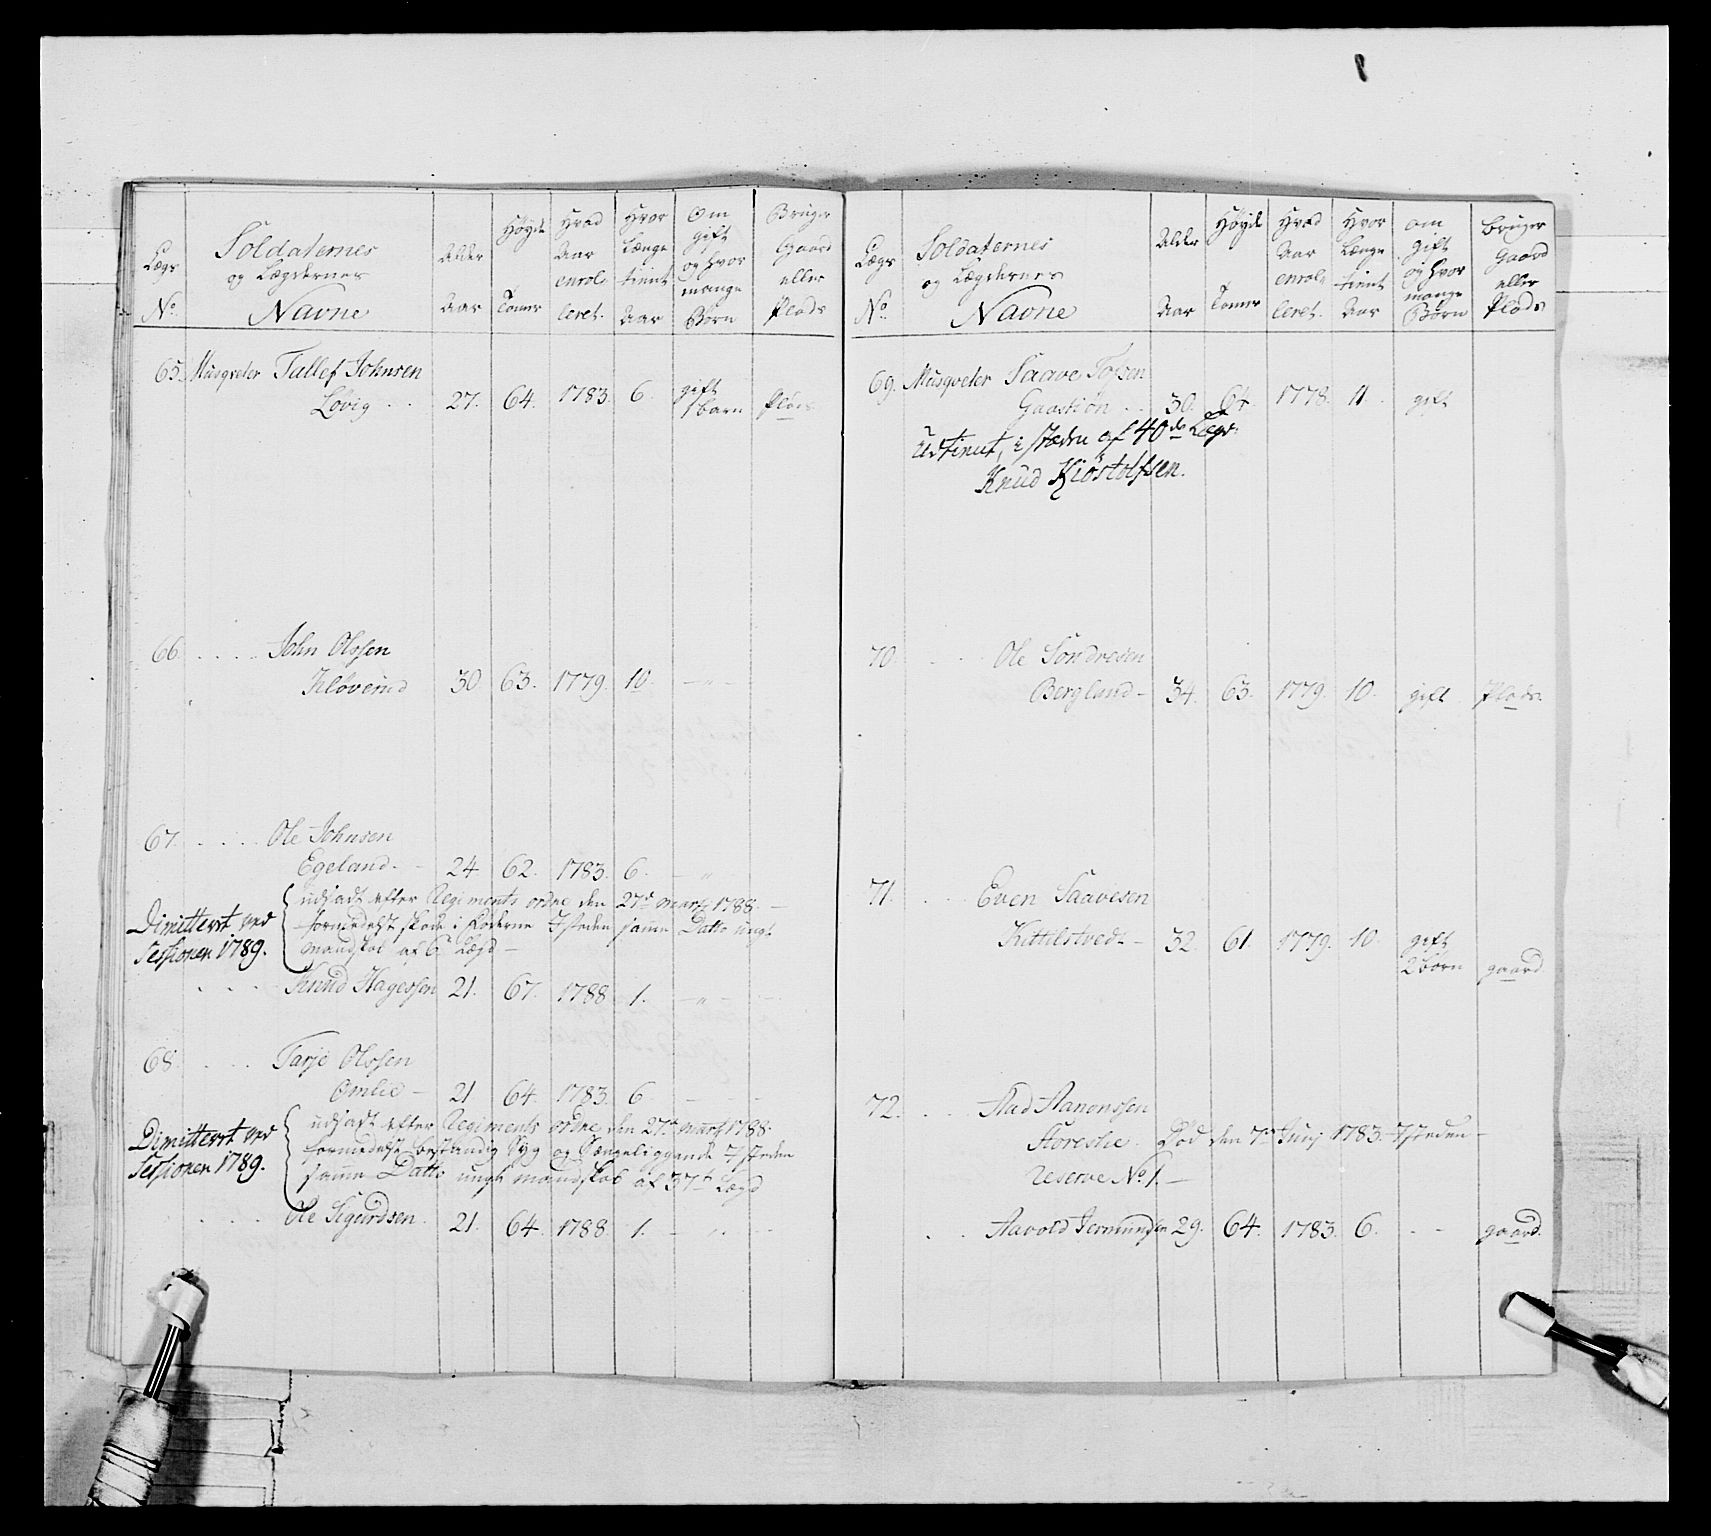 Lægs No.
Soldaternes og Lægdernes Navne
Alder Aar
Høyde Tomer
Hvad Aar enrolleret.
Hvor Længe tient Aar
Om gift og hvor mange Børn
Bruger Gaard eller Plads
65. Musqveter Tallef Johnsen
Løvig 27. 64. 1783. 6. gift 1 barn Plads
66. John Olssen
Kløveind 30 63. 1779. 10. — " —
67. Ole Johnsen
Egeland 24 62. 1783. 6. — " —
udsadt efter Regiments ordre den 27de Marty 1788. —
formedelst skade i føderne I steden samme Datto ungt
mandskab af 6 Lægd —
Dimitteret ved
Sessionen 1789.
Knud Hagessen 21. 67. 1788 1. — " —
68. Tarje Olssen
Omlie — 21 64. 1783. 6
udsadt efter Regiments ordre den 27de Marty 1788.
formedelst bestandig Syg og Sængeliggende I steden
samme Datto ungt mandskab af 37te Lægd
Dimitteret ved
Sessionen 1789.
Ole Sigurdsen. 21. 64. 1788 1. — " —
Lægs No.
Soldaternes og Lægdernes Navne
Alder Aar
Høyde Tomer
Hvad Aar enrolleret.
Hvor Længe tient Aar
om gift og hvor mange Børn
bruger Gaard eller Plads
69. Musqveter Saave
30. 64. 1778. 11. gift
Udtient, i stæden af 40de Lægd
Knud Kiöstolfsen.
70. Ole Söndresen
Bergland — 34. 63. 1779. 10. gift Plads.
71. Even Saavesen
Kittilstvedt — 32. 61. 1779. 10. gift
2 børn gaard
72. Aad Aanonssen
Død den 7de Junj 1783. I steden —
Reserve No 1. —
Aavold Jermundsen 29. 64. 1783. 6. — gaard.